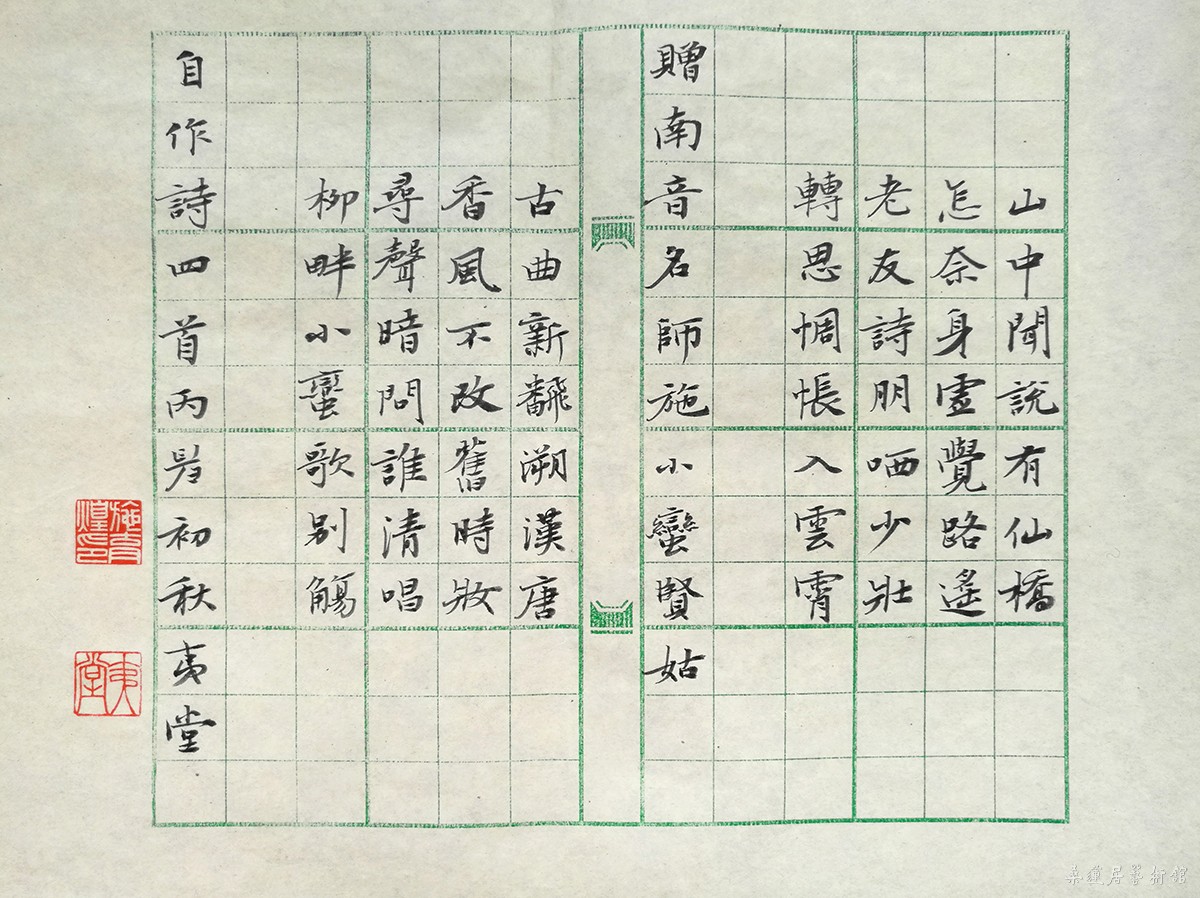 山中聞說有仙橋
怎奈身虛覺路遙
老友詩朋哂少壯
轉思惆悵入雲霄
贈南音名師施小蠻賢姑
古曲新飜溯漢唐
香風不改舊時妝
尋聲暗問誰清唱
柳畔小蠻歌別觴
自作詩四首丙初秋夷堂
夷堂
桑蓮居藝術館